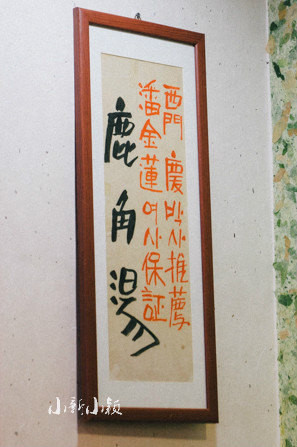 西門 慶박사推薦
潘金蓮여사保証
鹿角湯
小新小颖